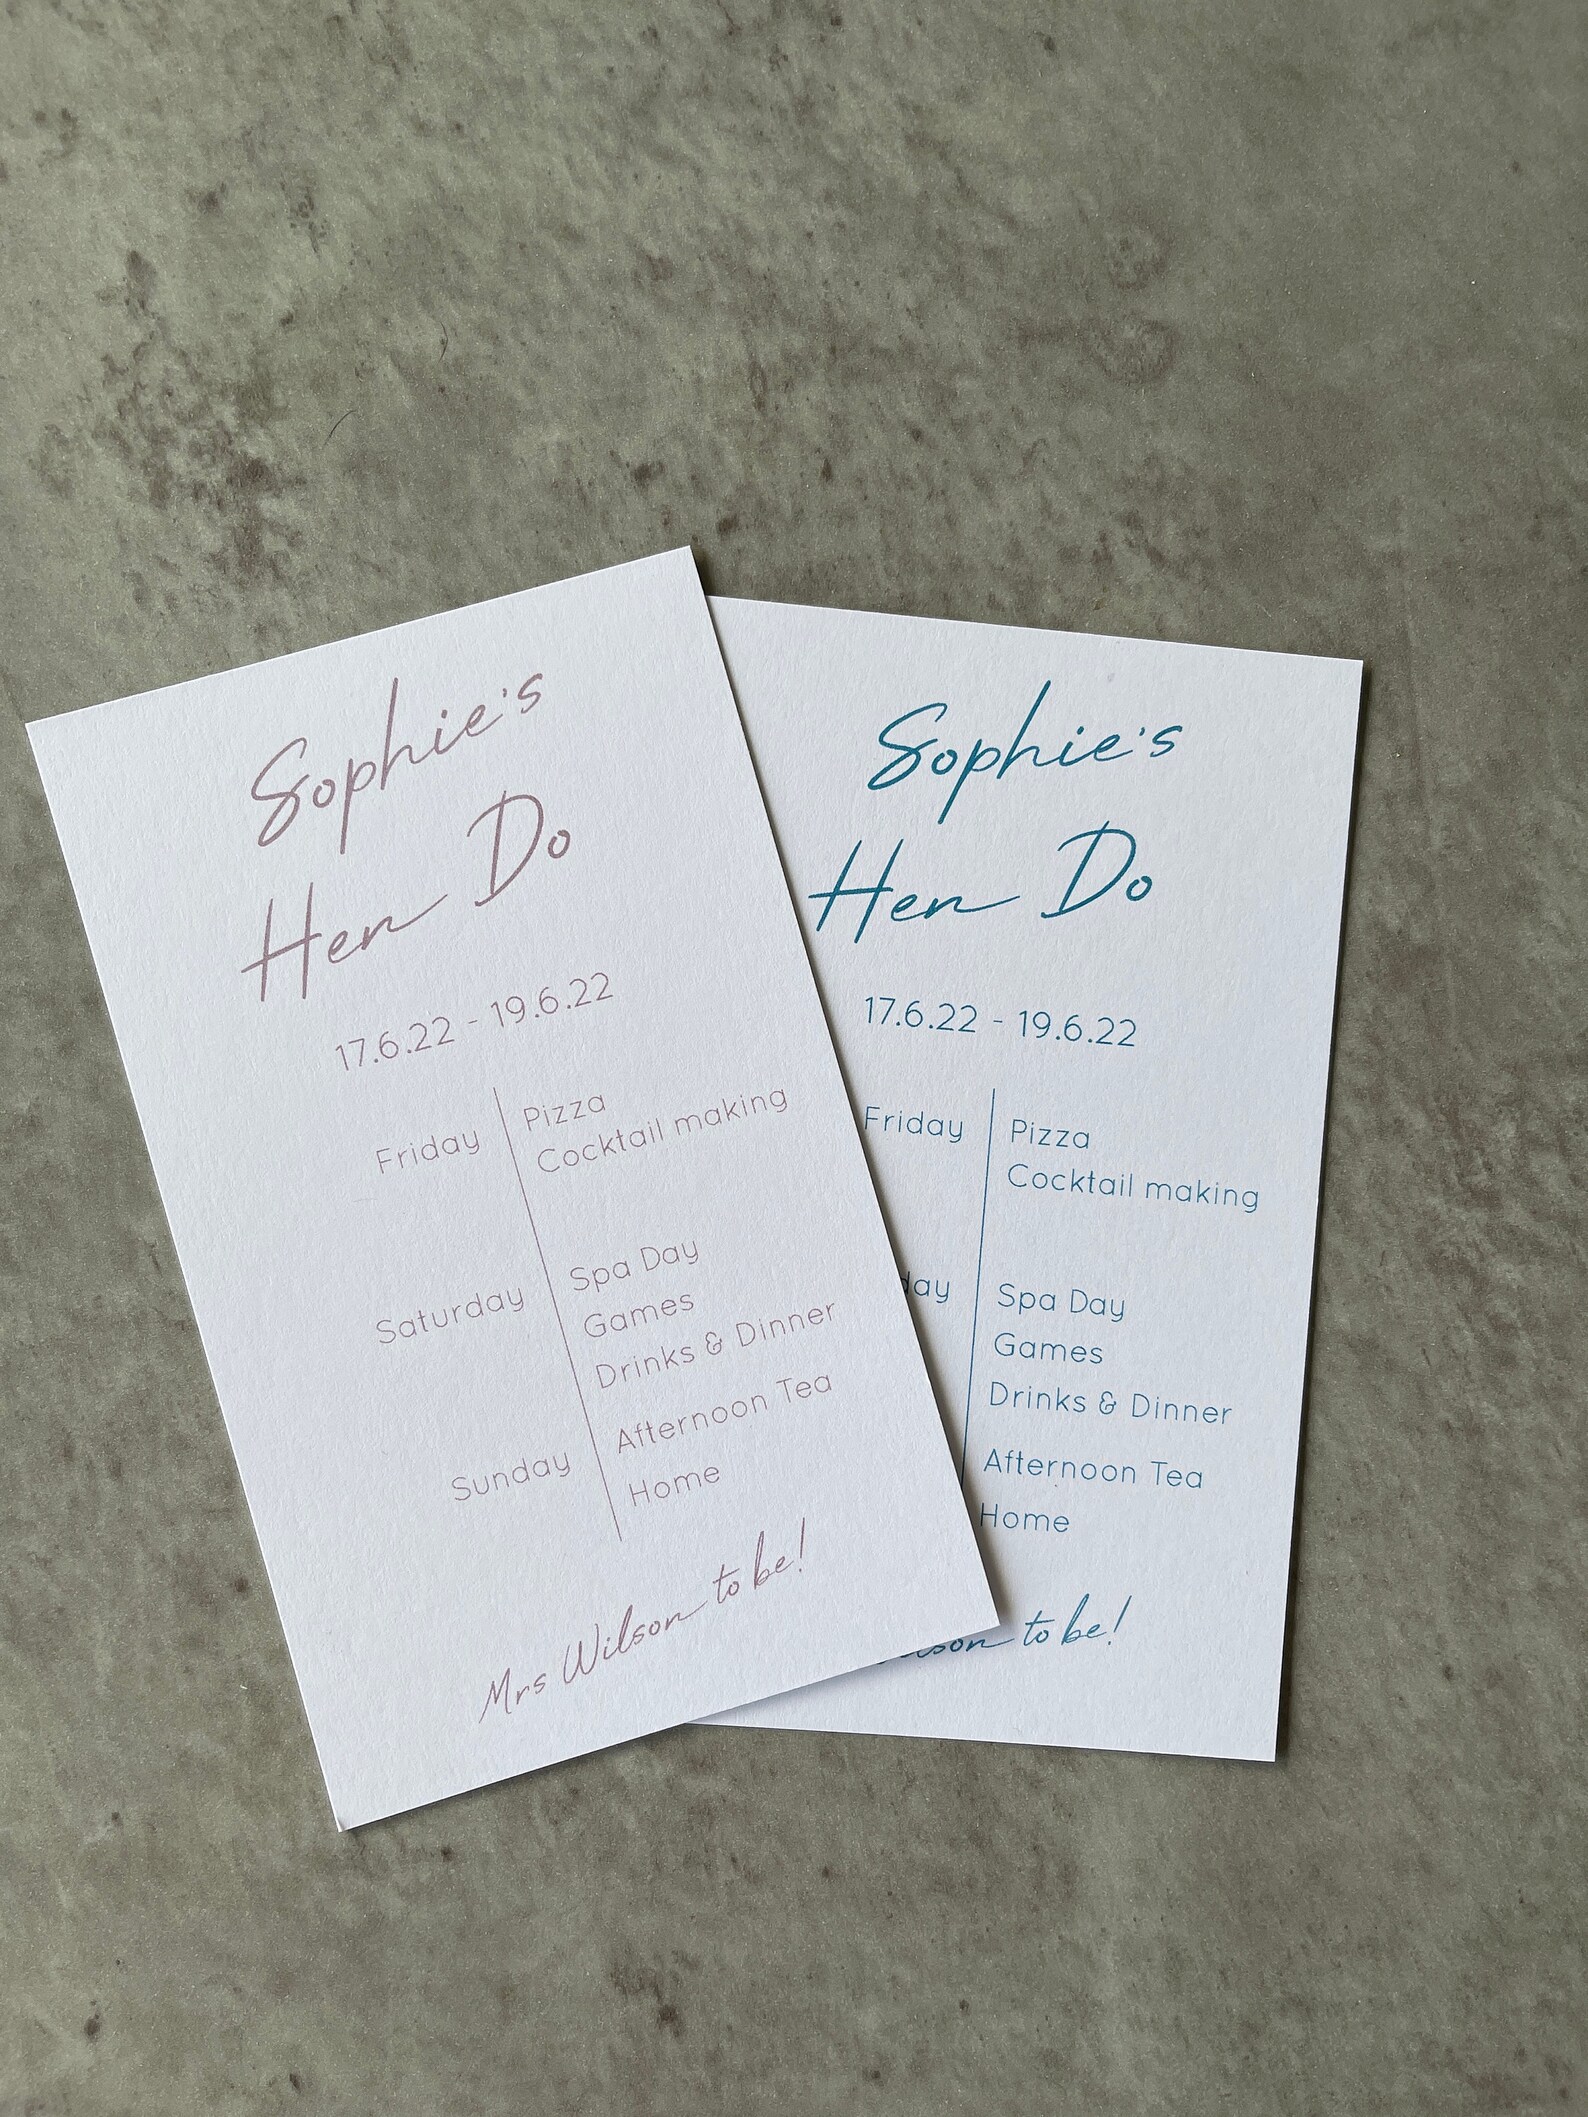 Sophie's
Hen Do
17.6.22 - 19.6.22
Friday
Pizza
Cocktail making
Saturday
Spa Day
Games
Drinks & Dinner
Sunday
Afternoon Tea
Home
Mrs Wilson to be!
Sophie's
Hen Do
17.6.22 - 19.6.22
Friday
Pizza
Cocktail making
day
Spa Day
Games
Drinks & Dinner
Afternoon Tea
Home
to be!